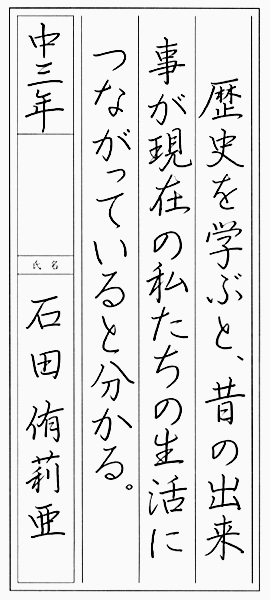 歴史を学ぶと、昔の出来
事が現在の私たちの生活に
つながっていると分かる。
中三年
氏名
石田侑莉亜